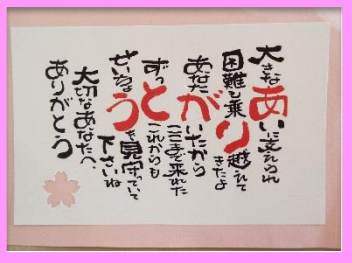 大きなあいに支えられ
困難も乗り越えて
きたよ
あなたがいたから
ここまで来れた
ずっとこれからも
せいちょうを見守っていて
下さいね
大切なあなたへ、
ありがとう